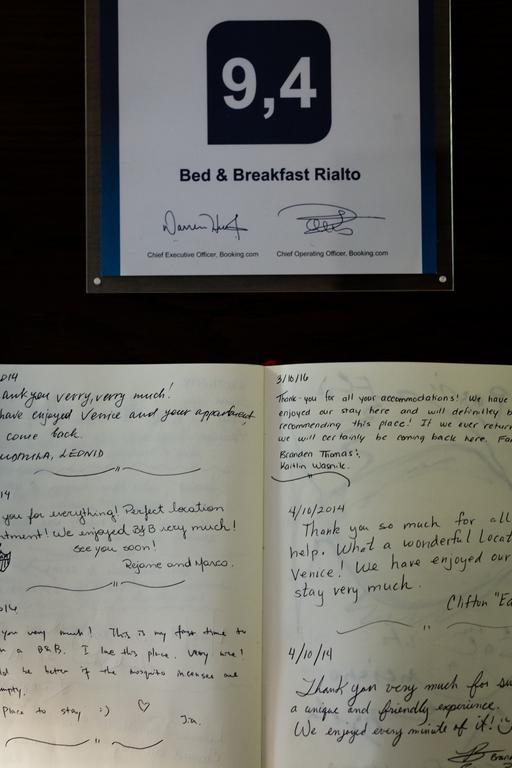 9,4
Bed & Breakfast Rialto
Chief Executive Officer, Booking.com
Chief Operating Officer, Booking.com
014
ank you verry, verry much!
have enjoyed Venice and your appartment,
come back.
LEONID
14
you for everything! Perfect location
ntment! We enjoyed B&B very much!
see you soon!
Rejane and Marco.
014
you very much! This is my first time to
n a B&B. I love this place. Very nice!
ld be better if the mosquito incenses are
mpty.
Place to stay :) ♡
Jia.
3/10/14
Thank-you for all your accommodations! We have
enjoyed our stay here and will definitley b
recommending this place! If we ever retur
we will certainly be coming back here.
Branden Thomas:
Kaitlin Wasnik.
4/10/2014
Thank you so much for all
help. What a wonderful locat
Venice! We have enjoyed our
stay very much.
Clifton "Ea
4/10/14
Thank you very much for su
a unique and friendly experience.
We enjoyed every minute of it!